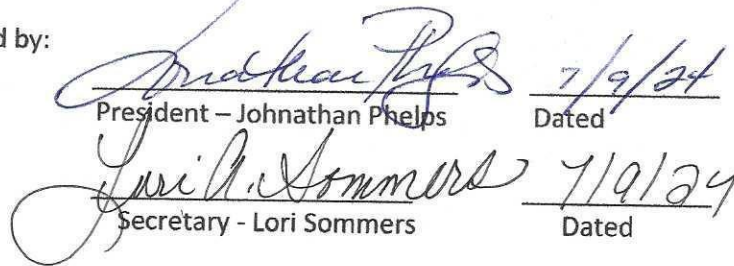 d by:
Jonathan Phelps 7/9/24
President – Johnathan Phelps Dated
Lori A. Sommers 7/9/24
Secretary - Lori Sommers Dated